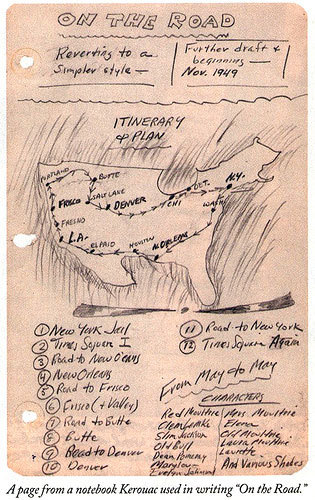 ON THE ROAD
Reverting to a
Simpler style —
Further draft &
beginning —
Nov. 1949
ITINERARY
& PLAN
PORTLAND
BUTTE
SALT LAKE
FRISCO
DENVER
FRESNO
L.A.
EL PASO
HOUSTON
N. ORLEANS
CHI
DET.
N.Y.
WASH.
① New York Jail
② Times Square I
③ Road to New O'leans
④ New Orleans
⑤ Road to Frisco
⑥ Frisco (+ Valley)
⑦ Road to Butte
⑧ Butte
⑨ Road to Denver
⑩ Denver
⑪ Road to New York
⑫ Times Square Again
From May to May
CHARACTERS
Red Moultrie
Slim Jackson
Old Bull
Dean Pomeray
Marylou
Mrs. Moultrie
Elena
Old Moultrie
Laura Moultrie
And Various Shades
A page from a notebook Kerouac used in writing "On the Road."